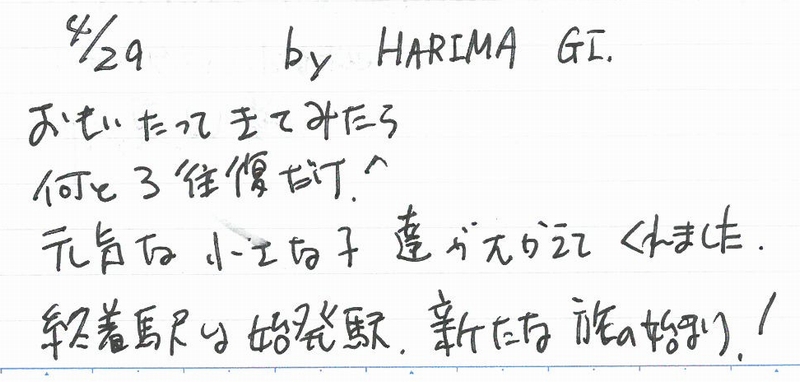 4/29 by HARIMA GI.
おもいたってきてみたら
何と3往復だけ.^
元気な小さな子達がむかえてくれました.
終着駅は始発駅.新たな旅の始まり!